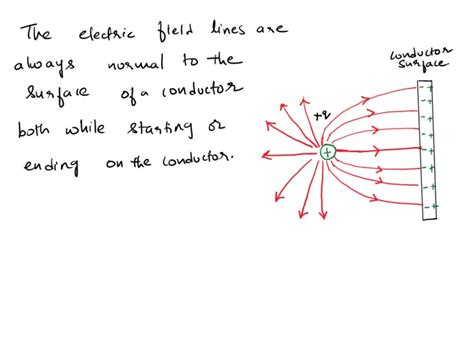 The electric field lines are
always normal to the
surface of a conductor
both while starting or
ending on the conductor.
conductor
surface
+q
+
- +
- +
- +
- +
- +
- +
- +
- +